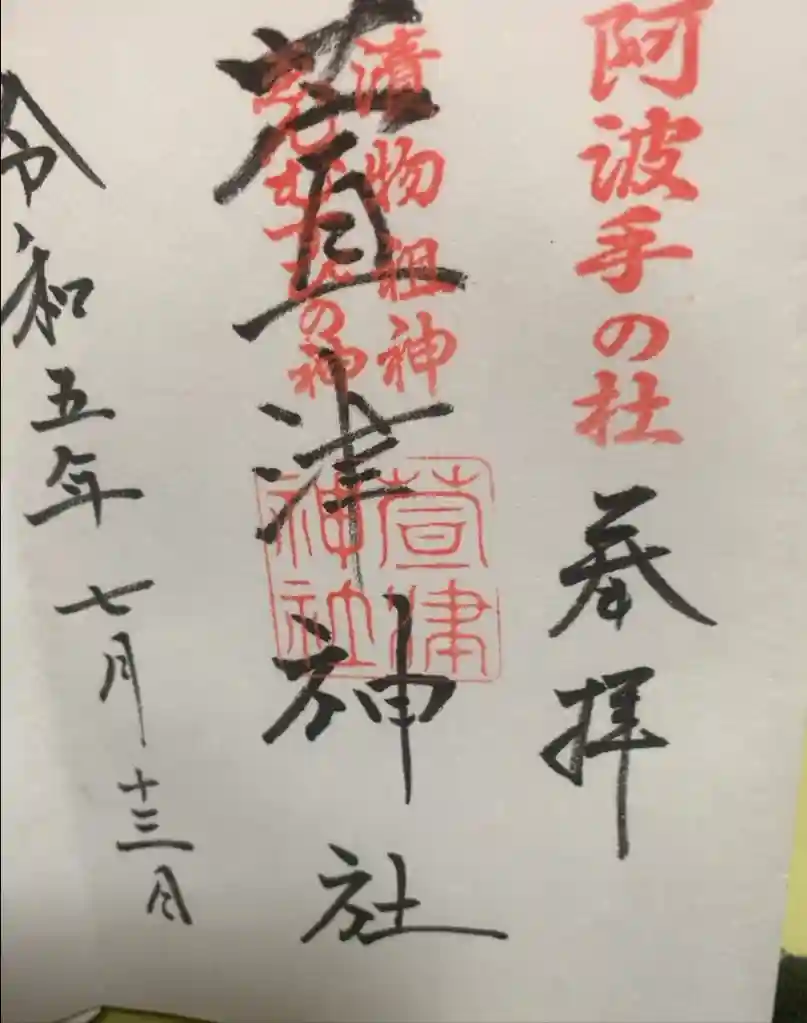 阿波手の杜
奉拝
漬物祖神
えんむすびの神
萱津神社
萱津
神社
令和五年七月十三日